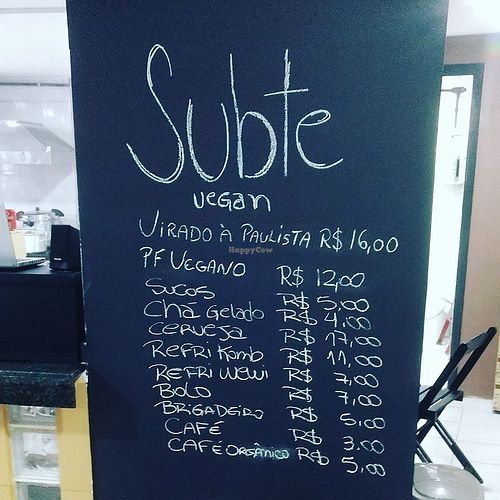 Subte
vegan
VIRADO À PAULISTA R$ 16,00
HappyCow
PF VEGANO R$ 12,00
SUCOS R$ 5,00
Chá Gelado R$ 4,00
CERVEJA R$ 17,00
REFRI Komb R$ 11,00
REFRI WEWI R$ 7,00
BOLO R$ 7,00
BRIGADEIRO 5,00
CAFÉ R$ 3,00
CAFÉ ORGÂNICO R$ 5,00